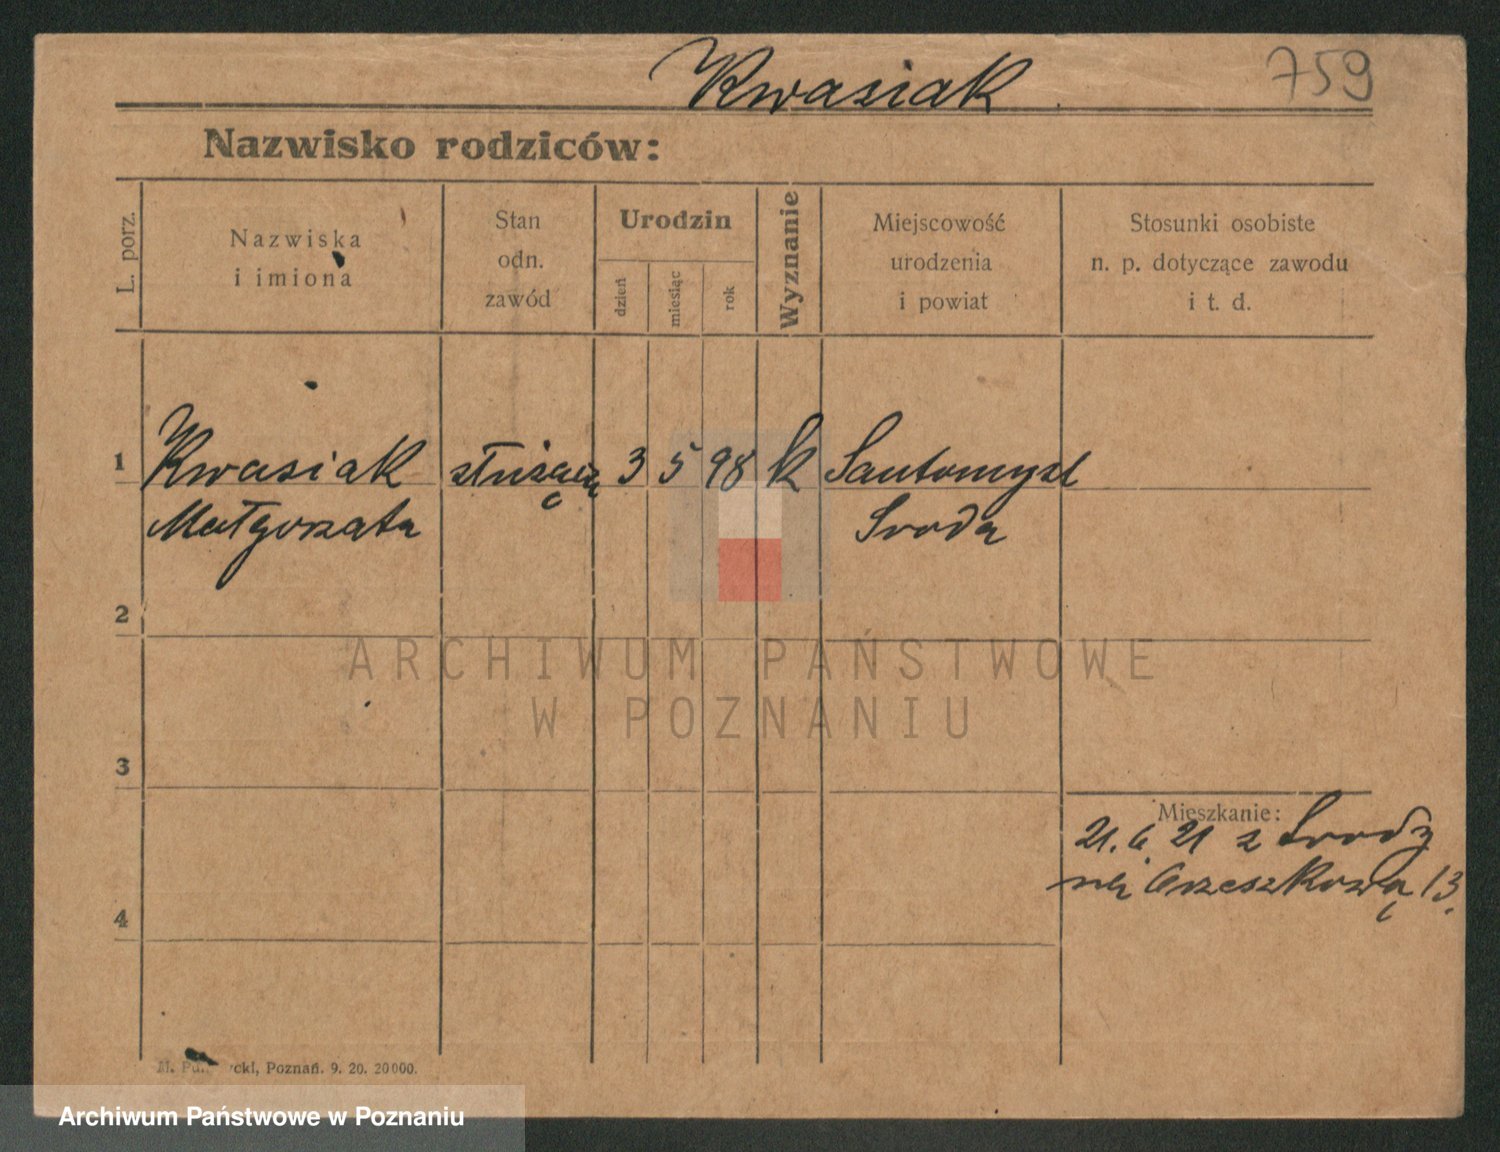 Kwasiak 759
Nazwisko rodziców:
L. porz.
Nazwiska
i imiona
Stan
odn.
zawód
Urodzin
dzień
miesiąc
rok
Wyznanie
Miejscowość
urodzenia
i powiat
Stosunki osobiste
n. p. dotyczące zawodu
i t. d.
1 Kwasiak służąca 3 5 98 k Santomyśl
Małgorzata Sroda
2
ARCHIWUM PAŃSTWOWE
W POZNANIU
3
Mieszkanie:
21. 6. 21 z Srody
na Orzeszkową 13.
4
M. Poznań. 9. 20. 20000.
Archiwum Państwowe w Poznaniu